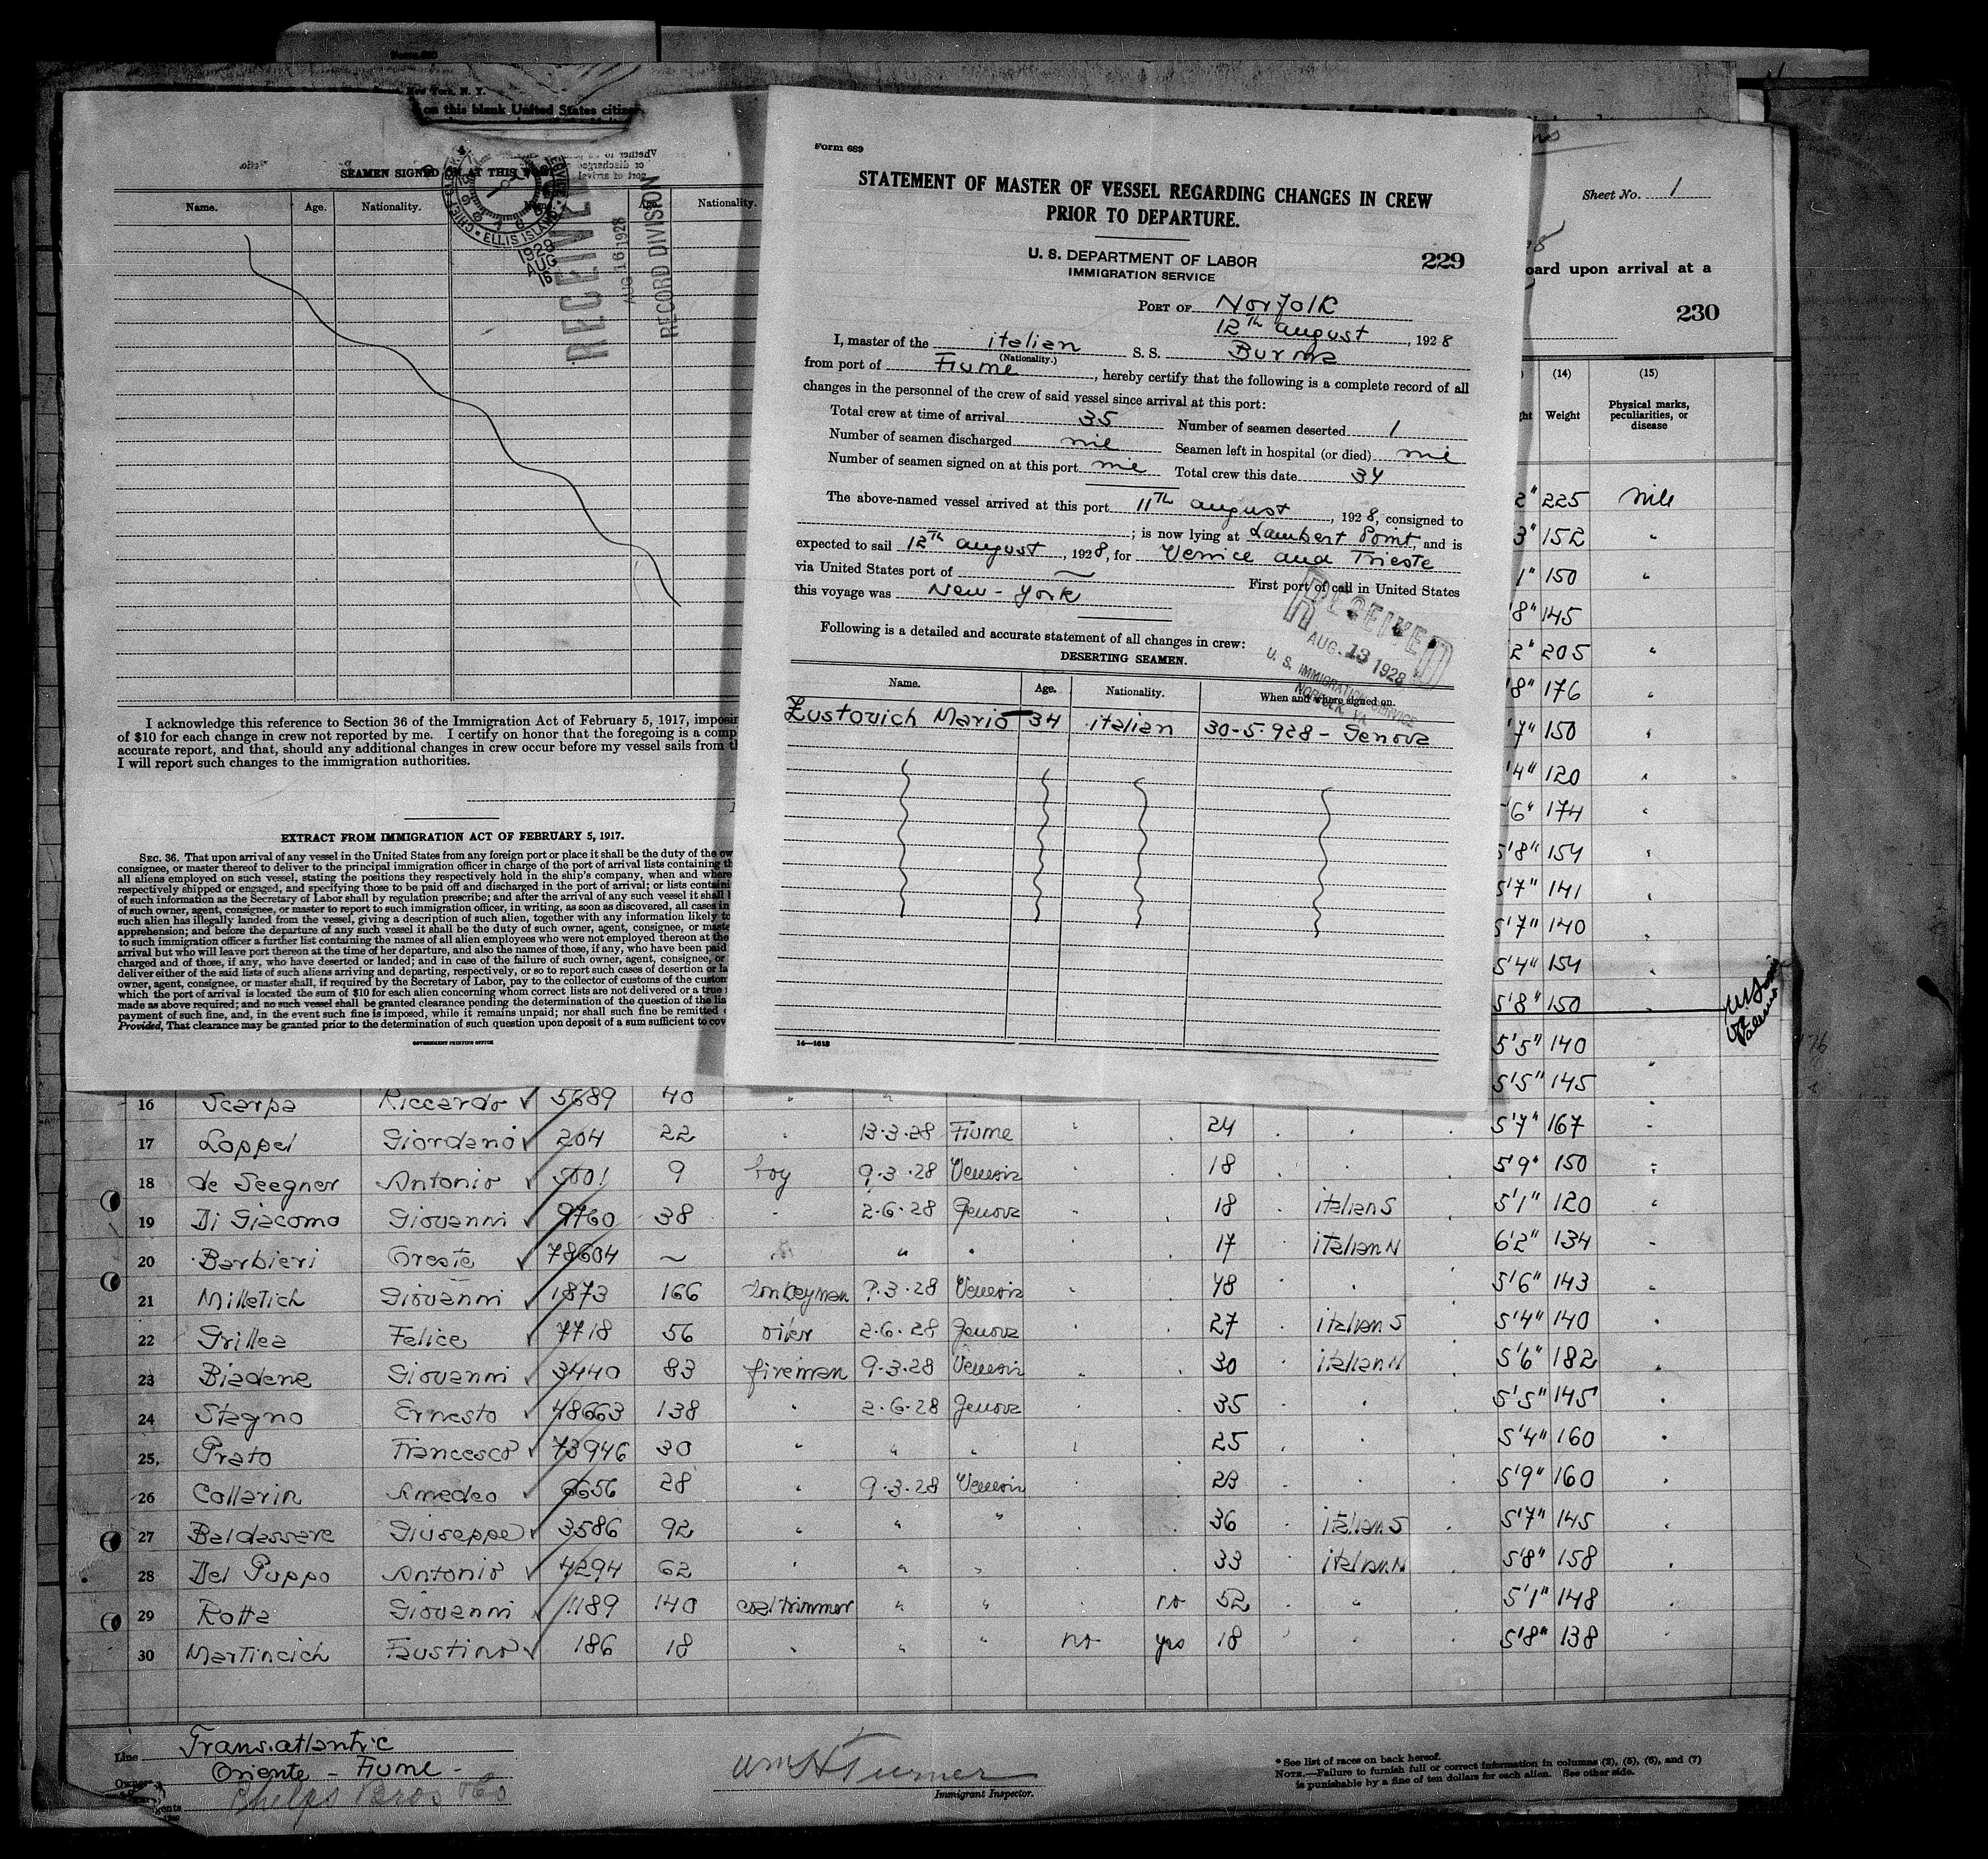 New York, N. Y.
on this blank United States citizen
SEAMEN SIGNED ON AT THIS PORT
Name. Age. Nationality. Name. Age. Nationality.
CHIEF CLERK
ELLIS ISLAND
1928
AUG
16
RECEIVED
AUG 16 1928
RECORD DIVISION
I acknowledge this reference to Section 36 of the Immigration Act of February 5, 1917,
of $10 for each change in crew not reported by me. I certify on honor that the foregoing is a
accurate report, and that, should any additional changes in crew occur before my vessel sails from
I will report such changes to the immigration authorities.
EXTRACT FROM IMMIGRATION ACT OF FEBRUARY 5, 1917.
SEC. 36. That upon arrival of any vessel in the United States from any foreign port or place it shall be the duty of the
consignee, or master thereof to deliver to the principal immigration officer in charge of the port of arrival lists containing
all aliens employed on such vessel, stating the positions they respectively hold in the ship's company, when and where
respectively shipped or engaged, and specifying those to be paid off and discharged in the port of arrival; or lists
of such information as the Secretary of Labor shall by regulation prescribe; and after the arrival of any such vessel it shall
of such owner, agent, consignee, or master to report to such immigration officer, in writing, as soon as discovered, all cases in
such alien has illegally landed from the vessel, giving a description of such alien, together with any information likely to
apprehension; and before the departure of any such vessel it shall be the duty of such owner, agent, consignee, or
to such immigration officer a further list containing the names of all alien employees who were not employed thereon at the
arrival but who will leave port thereon at the time of her departure, and also the names of those, if any, who have been paid
charged and of those, if any, who have deserted or landed; and in case of the failure of such owner, agent, consignee, or
deliver either of the said lists of such aliens arriving and departing, respectively, or so to report such cases of desertion or
owner, agent, consignee, or master shall, if required by the Secretary of Labor, pay to the collector of customs of the
which the port of arrival is located the sum of $10 for each alien concerning whom correct lists are not delivered or a true
made as above required; and no such vessel shall be granted clearance pending the determination of the question of the
payment of such fine, and, in the event such fine is imposed, while it remains unpaid; nor shall such fine be remitted
Provided, That clearance may be granted prior to the determination of such question upon deposit of a sum sufficient to
GOVERNMENT PRINTING OFFICE
Form 689
STATEMENT OF MASTER OF VESSEL REGARDING CHANGES IN CREW
PRIOR TO DEPARTURE.
U. S. DEPARTMENT OF LABOR
IMMIGRATION SERVICE
229
PORT OF Norfolk
12th august, 1928
I, master of the italian S. S. Burma
(Nationality.)
from port of Fiume, hereby certify that the following is a complete record of all
changes in the personnel of the crew of said vessel since arrival at this port:
Total crew at time of arrival 35 Number of seamen deserted 1
Number of seamen discharged nil Seamen left in hospital (or died) nil
Number of seamen signed on at this port nil Total crew this date 34
The above-named vessel arrived at this port 11th august, 1928, consigned to
; is now lying at Lambert Point, and is
expected to sail 12th august, 1928, for Venice and Trieste
via United States port of First port of call in United States
this voyage was New-York
RECEIVED
AUG. 13 1928
U. S. IMMIGRATION SERVICE
NORFOLK, VA
Following is a detailed and accurate statement of all changes in crew:
DESERTING SEAMEN.
Name. Age. Nationality. When and where signed on.
Zustovich Mario 34 italian 30-5-928 - Genova
14—1613
Sheet No. 1
oard upon arrival at a
230
(14) (15)
ght Weight Physical marks, peculiarities, or disease
2" 225 nill
3" 152 "
1" 150 "
8" 145
2" 205 "
8" 176 "
7" 150 "
4" 120 "
6" 174 "
5'8" 154 "
5'7" 141 "
5'7" 140 "
5'4" 154 "
5'8" 150 "
5'5" 140 "
5'5" 145 "
16 Scarpa Riccardo 5689 40 " "
17 Loppel Giordano 204 22 " 13-3-28 Fiume " . 24 . . . 5'7" 167 "
18 de Seegner Antonio 5001 9 boy 9-3-28 Venezia " . 18 . . . 5'9" 150 "
19 Di Giacomo Giovanni 9760 38 " 2-6-28 Genova " . 18 italian S . 5'1" 120 "
20 Barbieri Oreste 78604 ~ " " " . . 17 italian N 6'2" 134 "
21 Milletich Giovanni 1873 166 donkeyman 9-3-28 Venezia . . 48 . . 5'6" 143 "
22 Grillea Felice 7718 56 oiler 2-6-28 Genova . . 27 . italian S . 5'4" 140 "
23 Biadene Giovanni 3440 83 fireman 9-3-28 Venezia . . 30 . italian N . 5'6" 182 "
24 Stagno Ernesto 48663 138 " 2-6-28 Genova . . 35 . . . 5'5" 145 "
25 Prato Francesco 73946 30 " " " . . 25 . . . 5'4" 160 "
26 Collarin Amedeo 6656 28 " 9-3-28 Venezia . . 23 . . . 5'9" 160 "
27 Baldassare Giuseppe 3586 92 " " " . . 36 . italian S . 5'7" 145 "
28 Del Puppo Antonio 4294 62 " " " . . 33 . italian N . 5'8" 158 "
29 Rotta Giovanni 1189 140 coal trimmer " " . no 52 . " . 5'1" 148 "
30 Martincich Faustino 186 18 " " " no yes 18 . " . 5'8" 138 "
Line Transatlantic
Owner Oriente - Fiume -
Agents Phelps Bros & Co
Wm H Turner
Immigrant Inspector.
* See list of races on back hereof.
NOTE.—Failure to furnish full or correct information in columns (2), (5), (6), and (7)
is punishable by a fine of ten dollars for each alien. See other side.